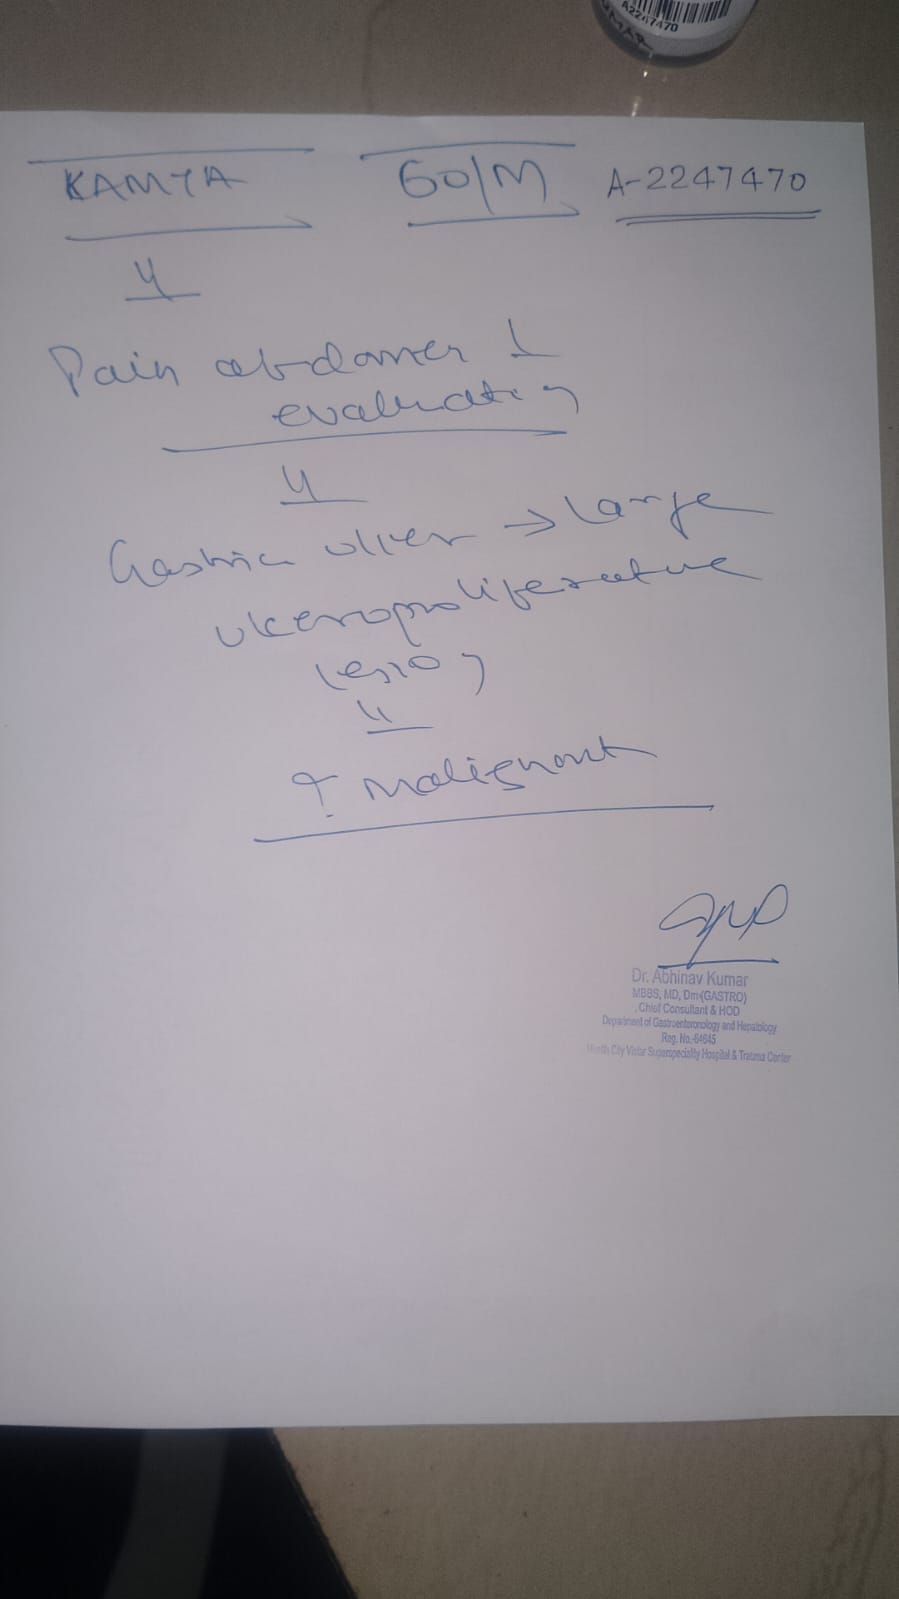 A2247470
KAMYA 60/M A-2247470
Pain abdomen
evaluation
Gastric ulcer → Large
ulceroproliferative
lesion
? Malignant
Dr. Abhinav Kumar
MBBS, MD, Dm-(GASTRO)
Chief Consultant & HOD
Department of Gastroenteronology and Hepatology
Reg. No.-64645
City Vistar Superspeciality Hospital & Trauma Center